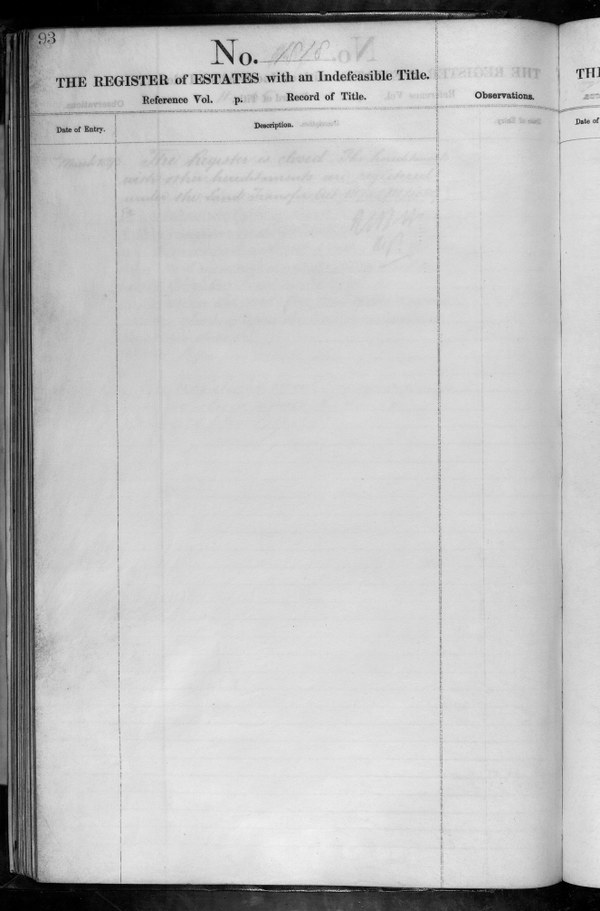 93
No. 1818
THE REGISTER of ESTATES with an Indefeasible Title.
Reference Vol. p. Record of Title. Observations.
Date of Entry. Description.
The Register is closed. The
with other hereditaments are registered
under the Land Transfer Act
TH
Date of